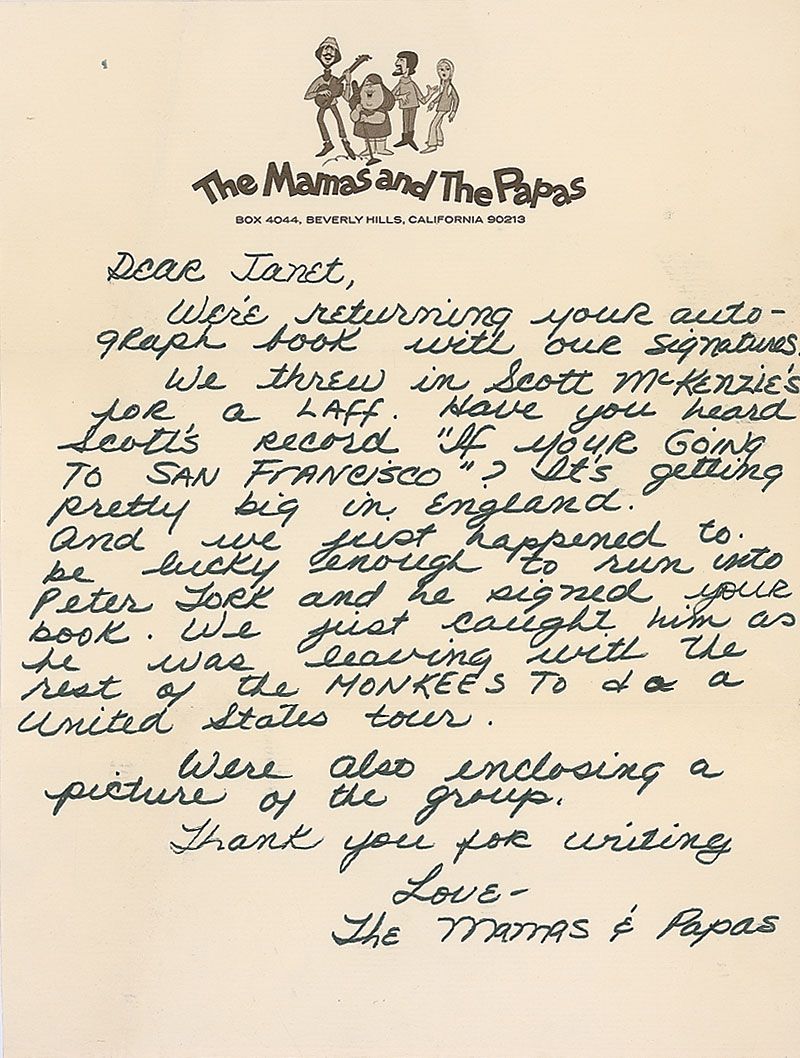 The Mamas and The Papas
BOX 4044, BEVERLY HILLS, CALIFORNIA 90213
Dear Janet,
We're returning your auto-
graph book with our signatures.
We threw in Scott McKenzie's
for a LAFF. Have you heard
Scott's record "If YOUR GOING
TO SAN FRANCISCO"? It's getting
pretty big in England.
And we just happened to
be lucky enough to run into
Peter TORK and he signed your
book. We just caught him as
he was leaving with the
rest of the MONKEES TO do a
United States tour.
Were also enclosing a
picture of the group.
Thank you for writing
Love-
The Mamas & Papas